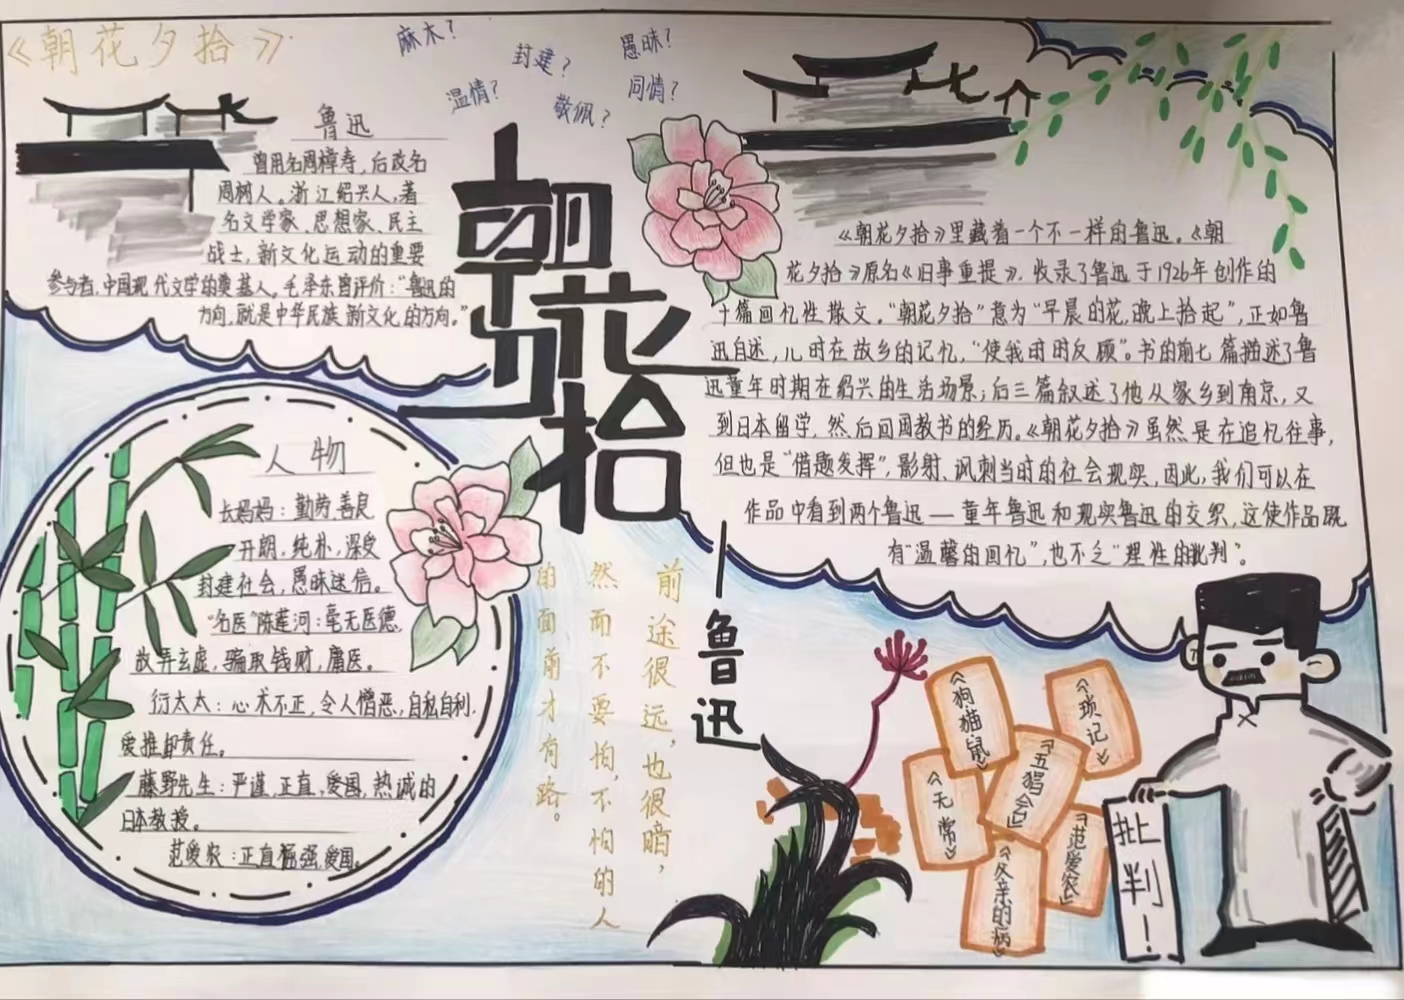 《朝花夕拾》
麻木？
封建？
愚昧？
温情？
敬佩？
同情？
鲁迅
曾用名周樟寿，后改名
周树人。浙江绍兴人，著
名文学家、思想家、民主
战士，新文化运动的重要
参与者，中国现代文学的奠基人。毛泽东曾评价：“鲁迅的
方向，就是中华民族新文化的方向。”
朝花夕拾
——鲁迅
《朝花夕拾》里藏着一个不一样的鲁迅。《朝
花夕拾》原名《旧事重提》，收录了鲁迅于1926年创作的
十篇回忆性散文。“朝花夕拾”意为“早晨的花，晚上拾起”，正如鲁
迅自述，儿时在故乡的记忆，“使我时时反顾”。书的前七篇描述了鲁
迅童年时期在绍兴的生活场景；后三篇叙述了他从家乡到南京，又
到日本留学，然后回国教书的经历。《朝花夕拾》虽然是在追忆往事，
但也是“借题发挥”，影射、讽刺当时的社会现实，因此，我们可以在
作品中看到两个鲁迅——童年鲁迅和现实鲁迅的交织，这使作品既
有“温馨的回忆”，也不乏“理性的批判”。
人物
长妈妈：勤劳，善良
开朗，纯朴，深受
封建社会，愚昧迷信。
“名医”陈莲河：毫无医德，
故弄玄虚，骗取钱财，庸医。
衍太太：心术不正，令人憎恶，自私自利，
爱推卸责任。
藤野先生：严谨，正直，爱国，热诚的
日本教授。
范爱农：正直倔强，爱国。
前途很远，也很暗，
然而不要怕，不怕的人
的面前才有路。
《狗猫鼠》
《琐记》
《五猖会》
《无常》
《范爱农》
《父亲的病》
批判！